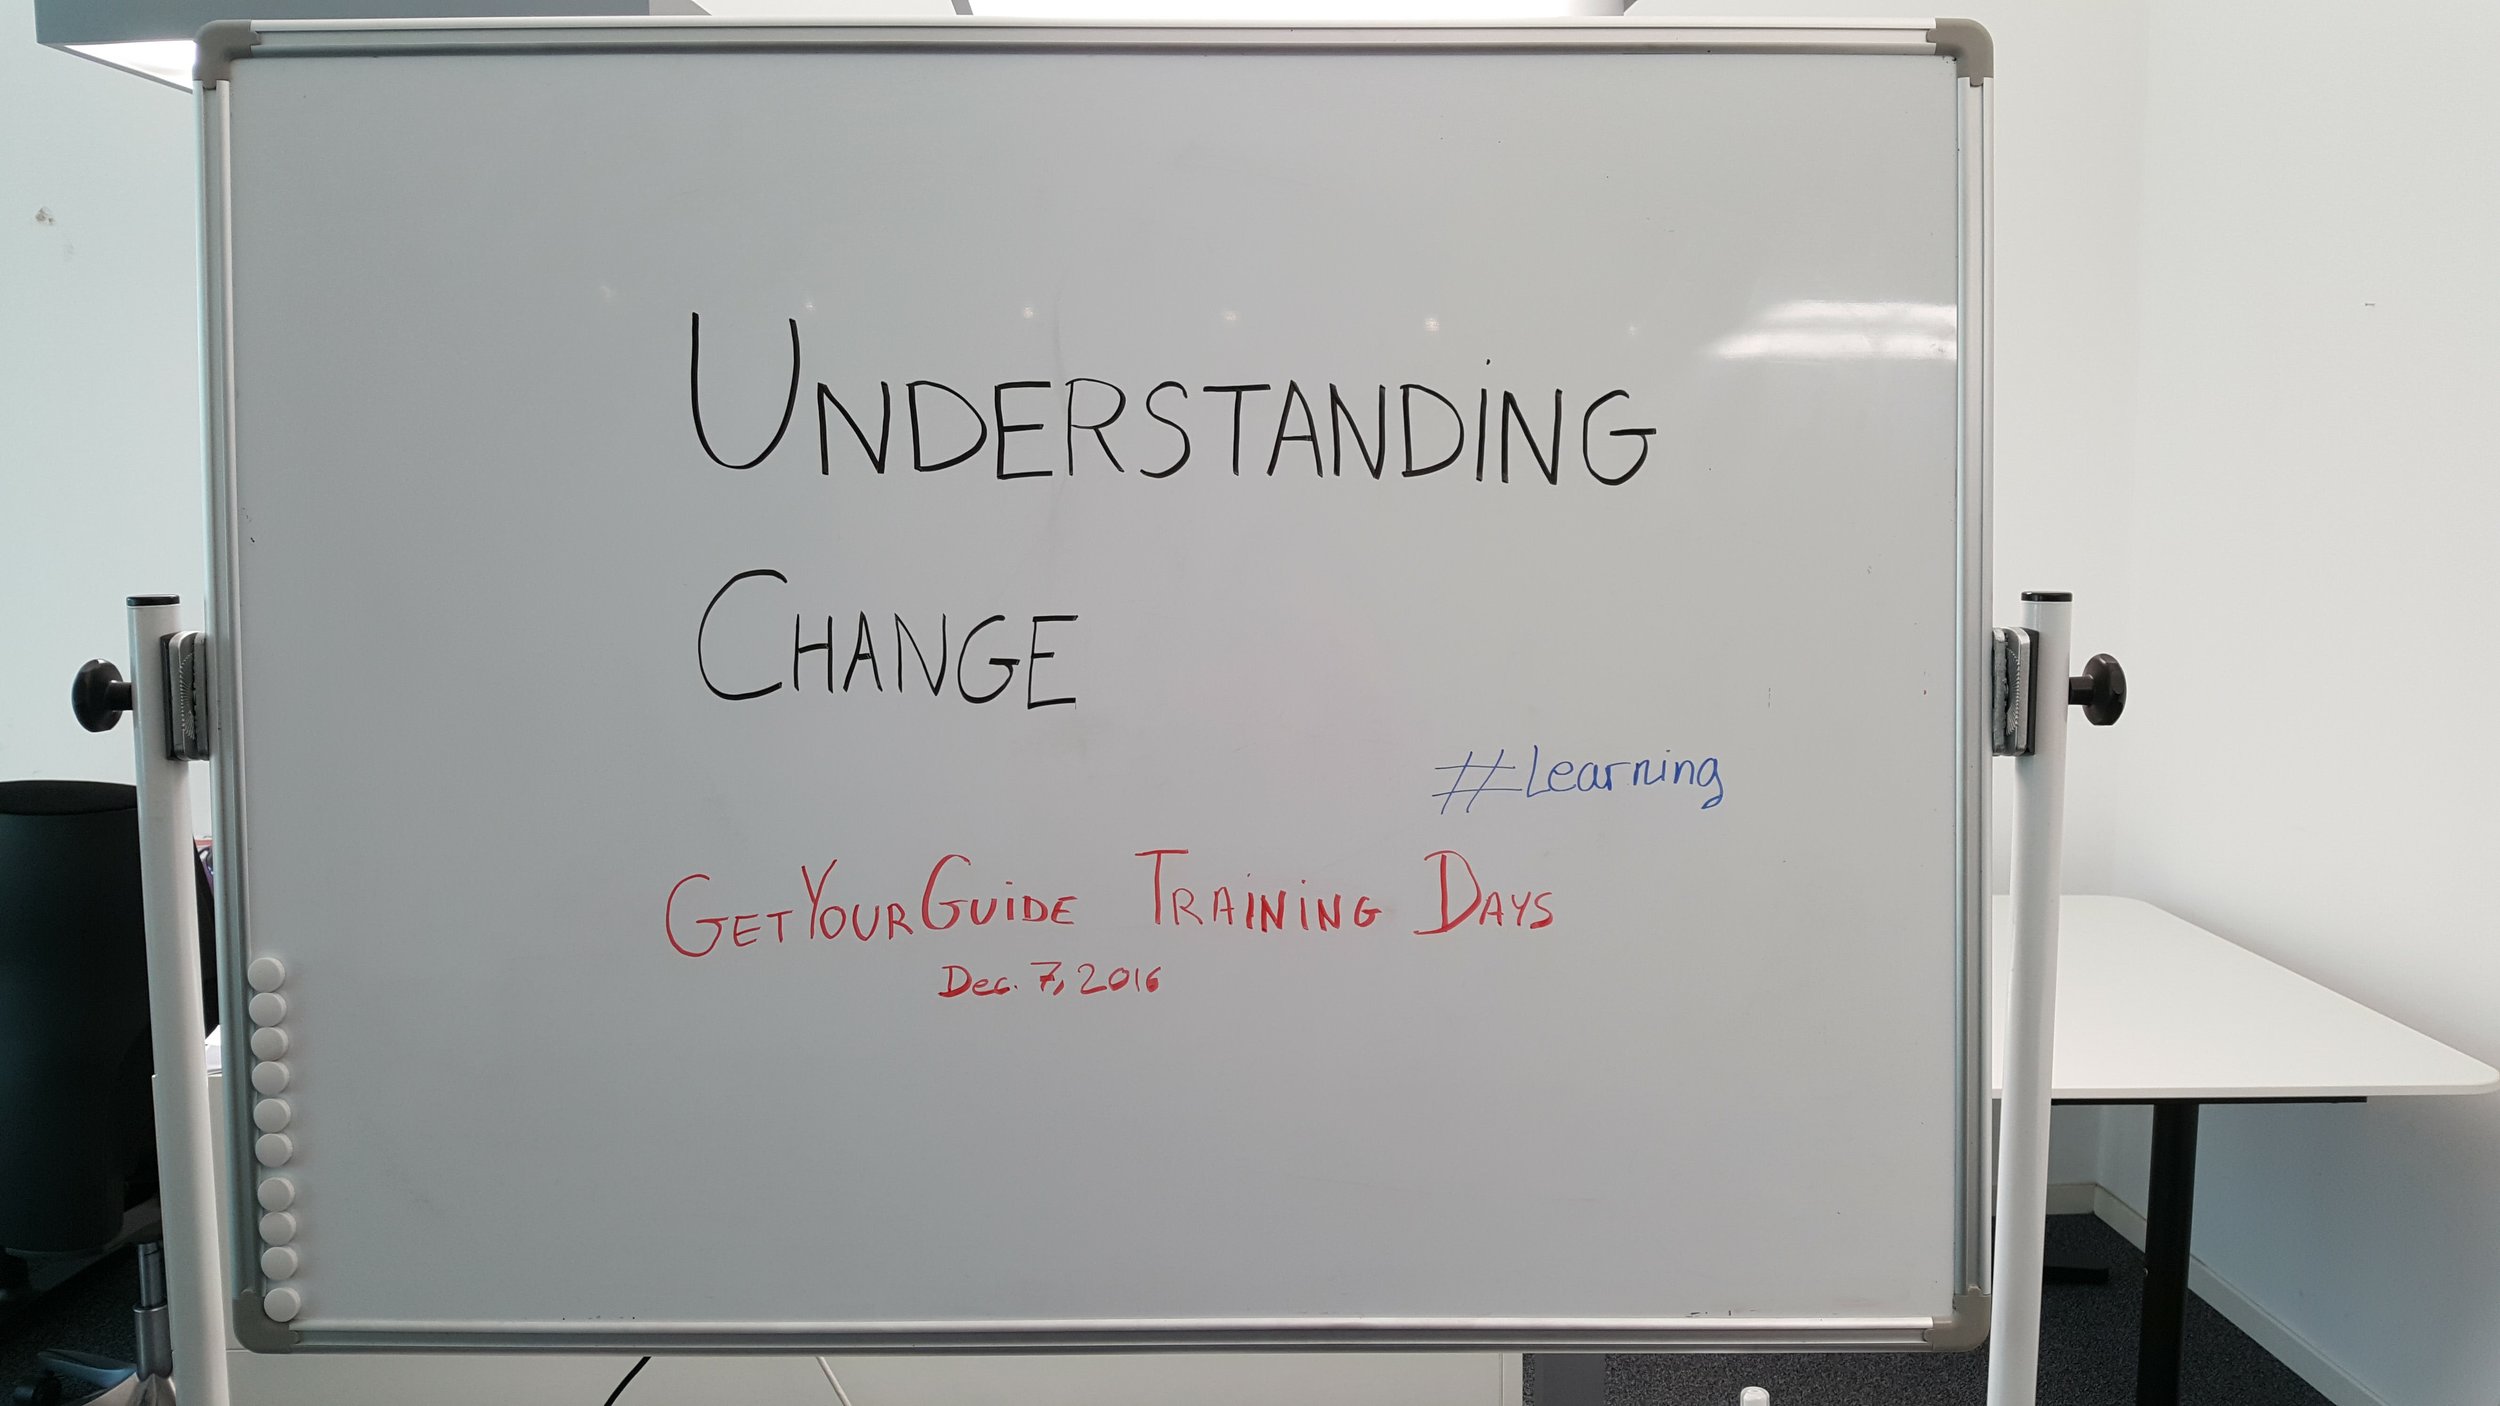 UNDERSTANDING
CHANGE
#Learning
GETYOURGUIDE TRAINING DAYS
Dec. 7, 2016